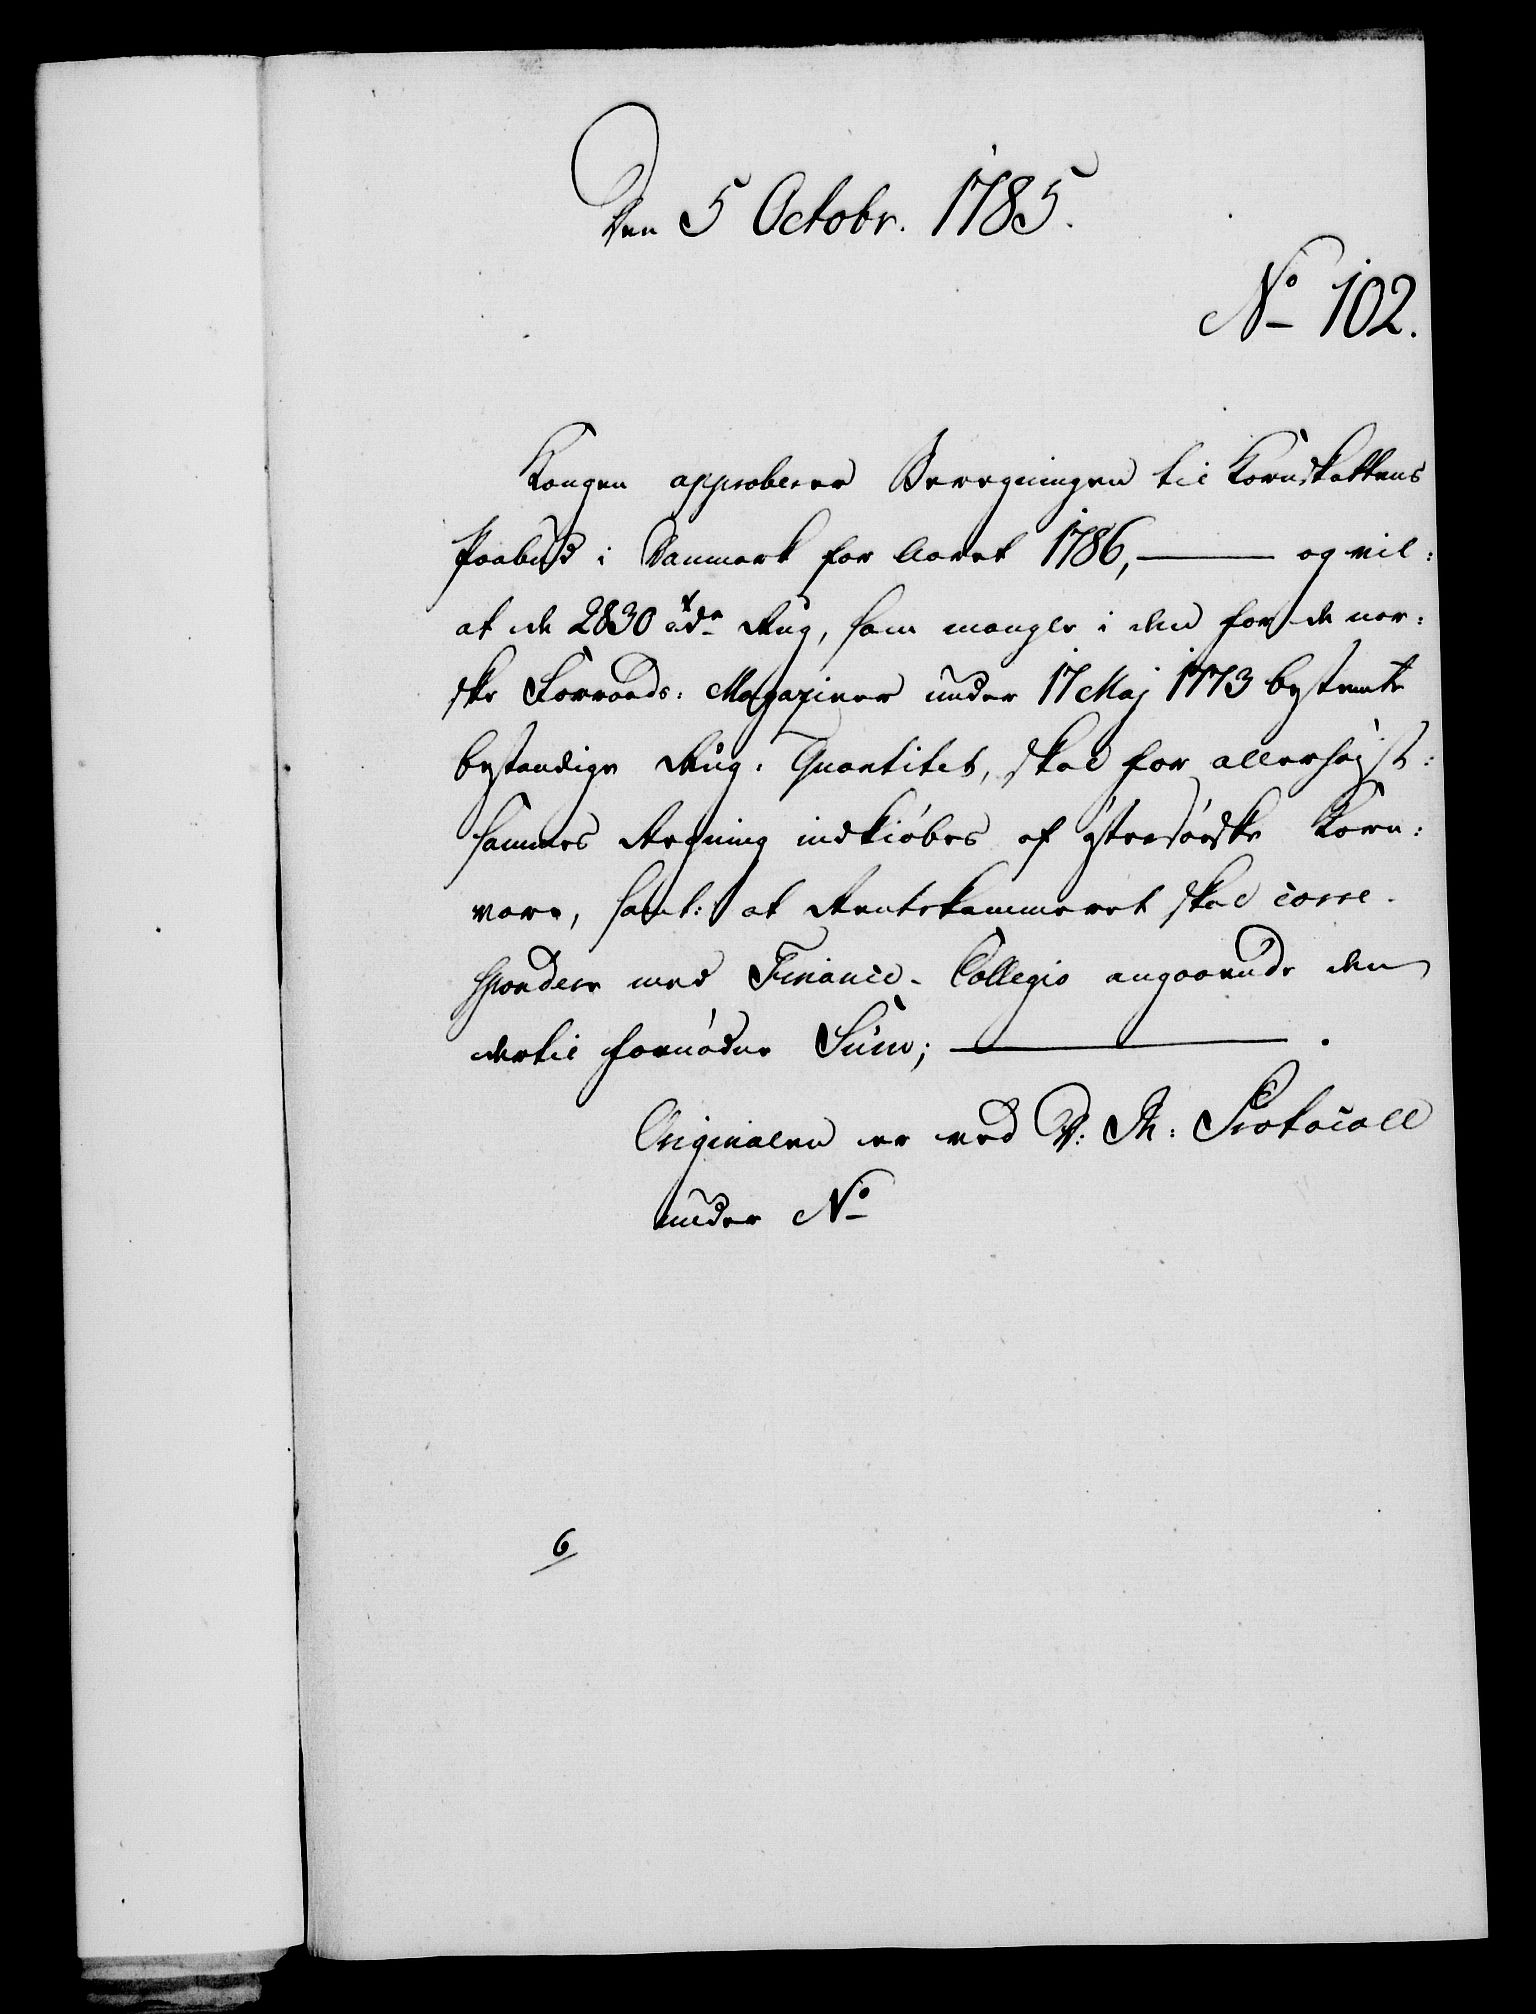 Den 5 Octobr. 1785.
No 102.
Kongen approberer Beregningen til Kornskattens
Paabud i Danmark for Aaret 1786, — og vil:
at de 2830 tdr Rug, som mangle i den for de nor:
ske Forraads: Magaziner under 17 Maj 1773 bestemte
bestandige Rug. Quantitet, skal for allerhøjst:
sammes Regning indkiøbes af østersøiske Korn:
vare, samt: at Rentekammeret skal corre-
spondere med Finance-Collegio angaaende den
dertil fornødne Sum; —
Originalen er ved V: R: Protocoll
under No
6